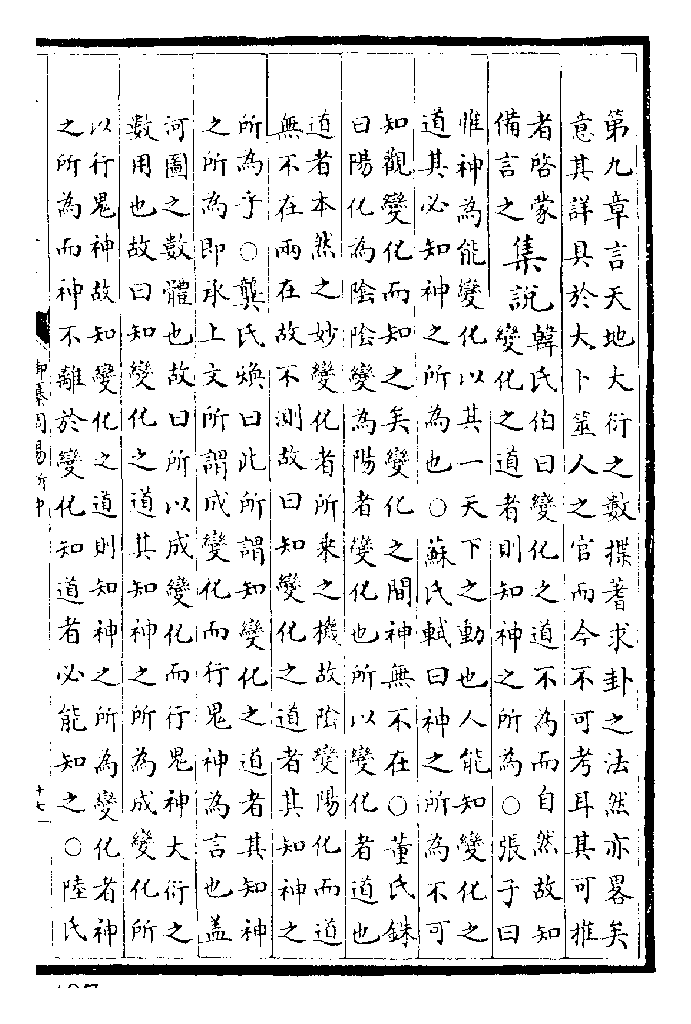 第九章言天地大衍之數揲蓍求卦之法然亦畧矣
意其詳具於大卜筮人之官而今不可考耳其可推
者啓蒙
備言之
集說
韓氏伯曰變化之道不為而自然故知
變化之道者則知神之所為○張子曰
惟神為能變化以其一天下之動也人能知變化之
道其必知神之所為也○蘇氏軾曰神之所為不可
知觀變化而知之矣變化之間神無不在○董氏銖
曰陽化為陰陰變為陽者變化也所以變化者道也
道者本然之妙變化者所乘之機故陰變陽化而道
無不在兩在故不測故曰知變化之道者其知神之
所為乎○龔氏煥曰此所謂知變化之道者其知神
之所為即承上文所謂成變化而行鬼神為言也盖
河圖之數體也故曰所以成變化而行鬼神大衍之
數用也故曰知變化之道其知神之所為成變化所
以行鬼神故知變化之道則知神之所為變化者神
之所為而神不離於變化知道者必能知之○陸氏
御纂周易折中
十七